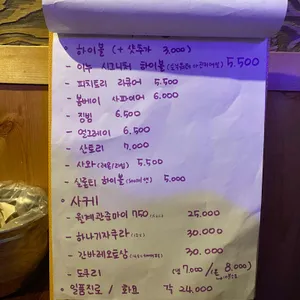 · 하이볼 (+ 샷추가 3,000)
- 이누 시그니처 하이볼 5,500
- 피치트리 리큐어 5,500
- 봄베이 사파이어 6,000
- 짐빔 6,500
- 얼그레이 6,500
- 산토리 7,000
- 사와 (레몬/라임) 5,500
- 실론티 하이볼 5,000
· 사케
- 월계관준마이 750 25,000
- 하나기자쿠라 30,000
- 간바레오또상 30,000
- 도쿠리 7,000 / 8,000
· 일품진로 / 화요 각 24,000